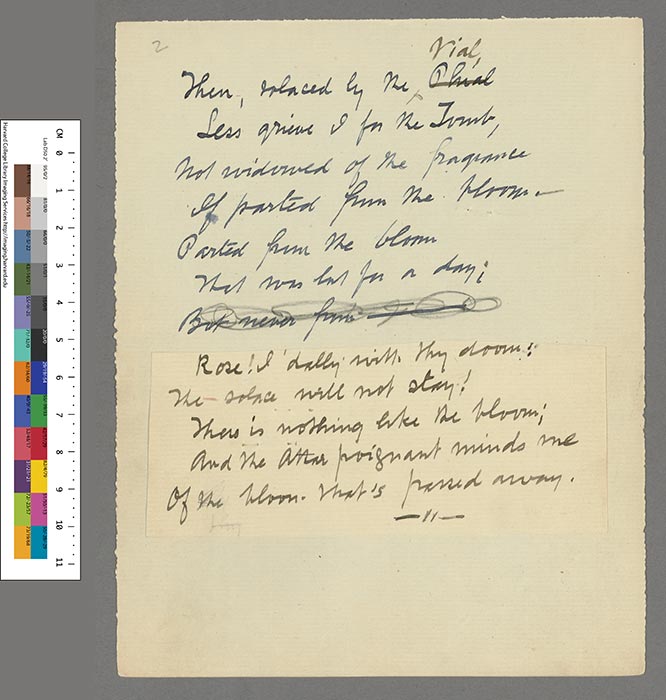 2
Vial,
Then, solaced by the Phial
Less grieve I for the Tomb,
Not widowed of the fragrance
If parted from the bloom—
Parted from the bloom
That was but for a day;
But never from
Rose! I dally with thy doom:
The solace will not stay!
There is nothing like the bloom;
And the Attar poignant minds me
Of the bloom that's passed away.
CM 0 1 2 3 4 5 6 7 8 9 10 11
Harvard College Library Imaging Services http://imaging.harvard.edu